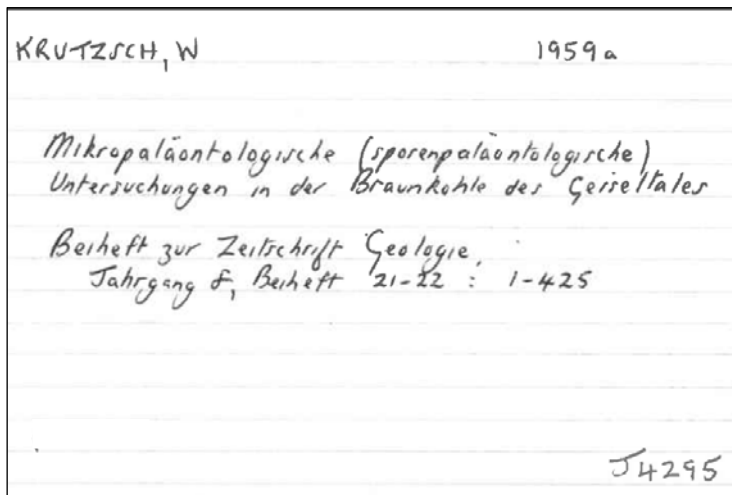 KRUTZSCH, W 1959a
Mikropaläontologische (sporenpaläontologische)
Untersuchungen in der Braunkohle des Geiseltales
Beiheft zur Zeitschrift Geologie,
Jahrgang 8, Beiheft 21-22 : 1-425
J4295